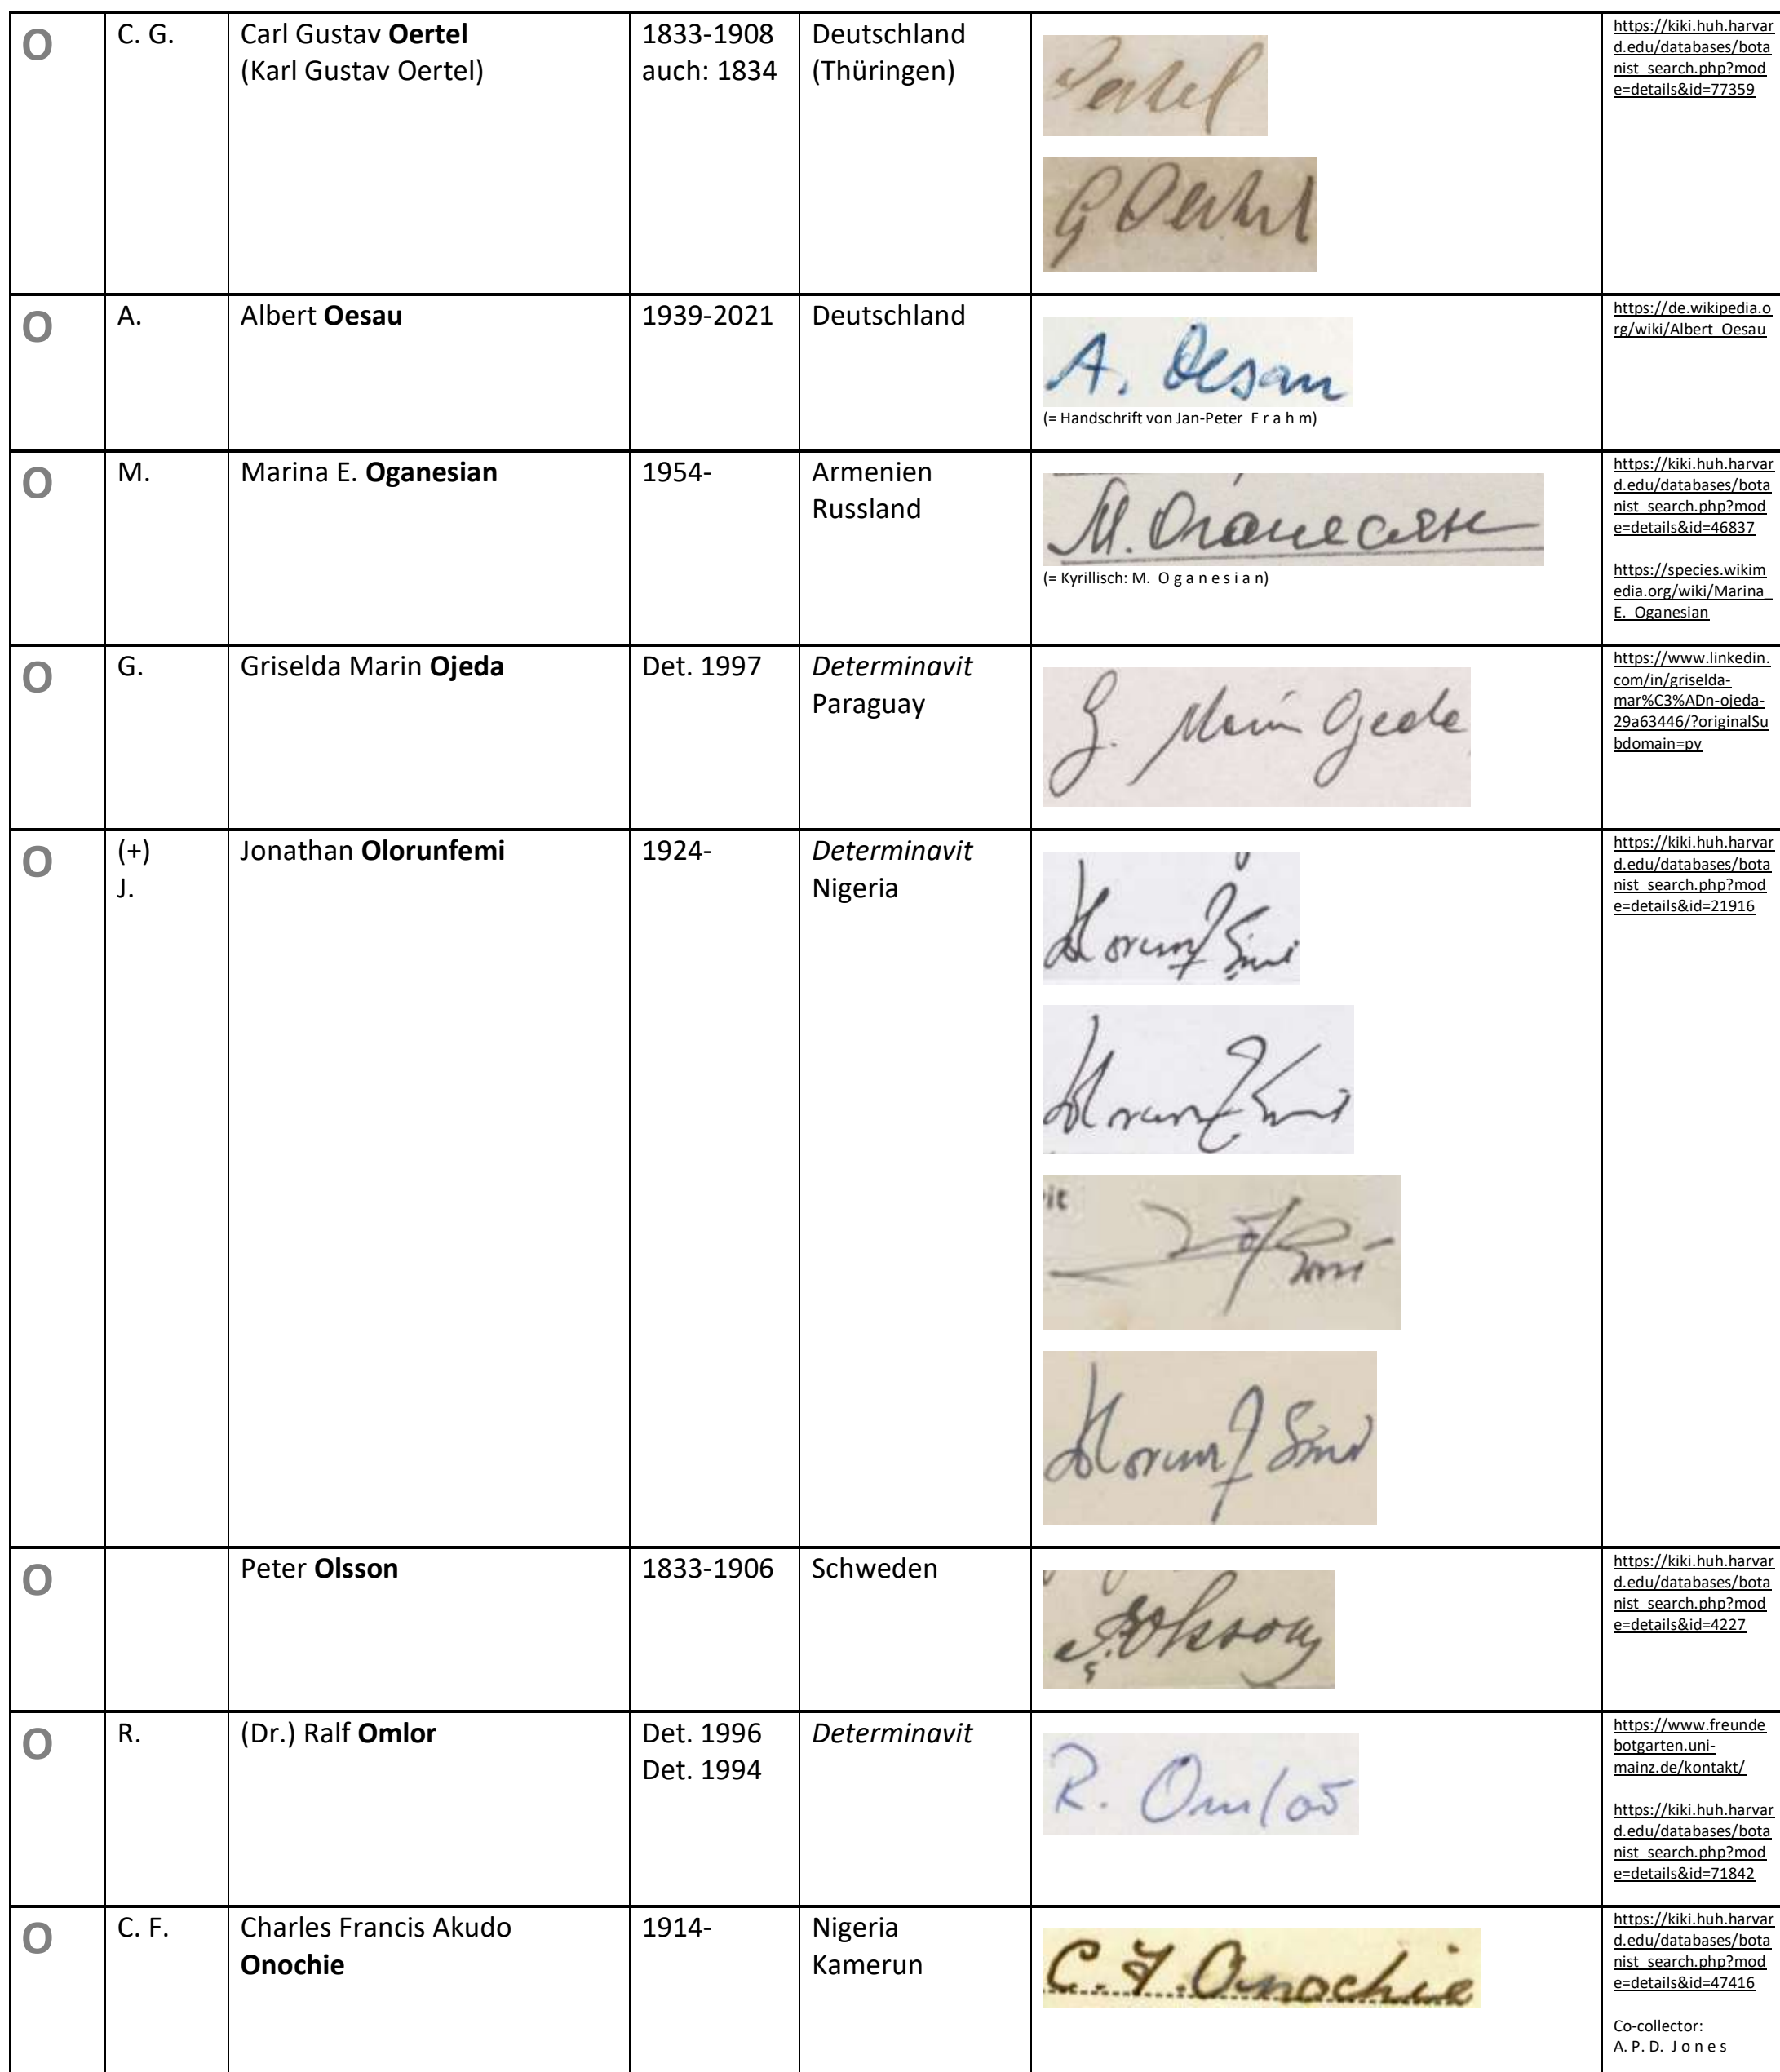 O
C. G.
Carl Gustav Oertel
(Karl Gustav Oertel)
1833-1908
auch: 1834
Deutschland
(Thüringen)
Oertel
G Oertel
https://kiki.huh.harvar
d.edu/databases/bota
nist_search.php?mod
e=details&id=77359
O
A.
Albert Oesau
1939-2021
Deutschland
A. Oesau
(= Handschrift von Jan-Peter F r a h m)
https://de.wikipedia.o
rg/wiki/Albert_Oesau
O
M.
Marina E. Oganesian
1954-
Armenien
Russland
М. Оганесян
(= Kyrillisch: M. O g a n e s i a n)
https://kiki.huh.harvar
d.edu/databases/bota
nist_search.php?mod
e=details&id=46837
https://species.wikim
edia.org/wiki/Marina_
E._Oganesian
O
G.
Griselda Marin Ojeda
Det. 1997
Determinavit
Paraguay
G. Marín Ojeda
https://www.linkedin.
com/in/griselda-
mar%C3%ADn-ojeda-
29a63446/?originalSu
bdomain=py
O
(+)
J.
Jonathan Olorunfemi
1924-
Determinavit
Nigeria
Olorunfemi
Olorunfemi
Olorunfemi
https://kiki.huh.harvar
d.edu/databases/bota
nist_search.php?mod
e=details&id=21916
O
Peter Olsson
1833-1906
Schweden
P. Olsson
https://kiki.huh.harvar
d.edu/databases/bota
nist_search.php?mod
e=details&id=4227
O
R.
(Dr.) Ralf Omlor
Det. 1996
Det. 1994
Determinavit
R. Omlor
https://www.freunde
botgarten.uni-
mainz.de/kontakt/
https://kiki.huh.harvar
d.edu/databases/bota
nist_search.php?mod
e=details&id=71842
O
C. F.
Charles Francis Akudo
Onochie
1914-
Nigeria
Kamerun
C. F. Onochie
https://kiki.huh.harvar
d.edu/databases/bota
nist_search.php?mod
e=details&id=47416
Co-collector:
A. P. D. J o n e s